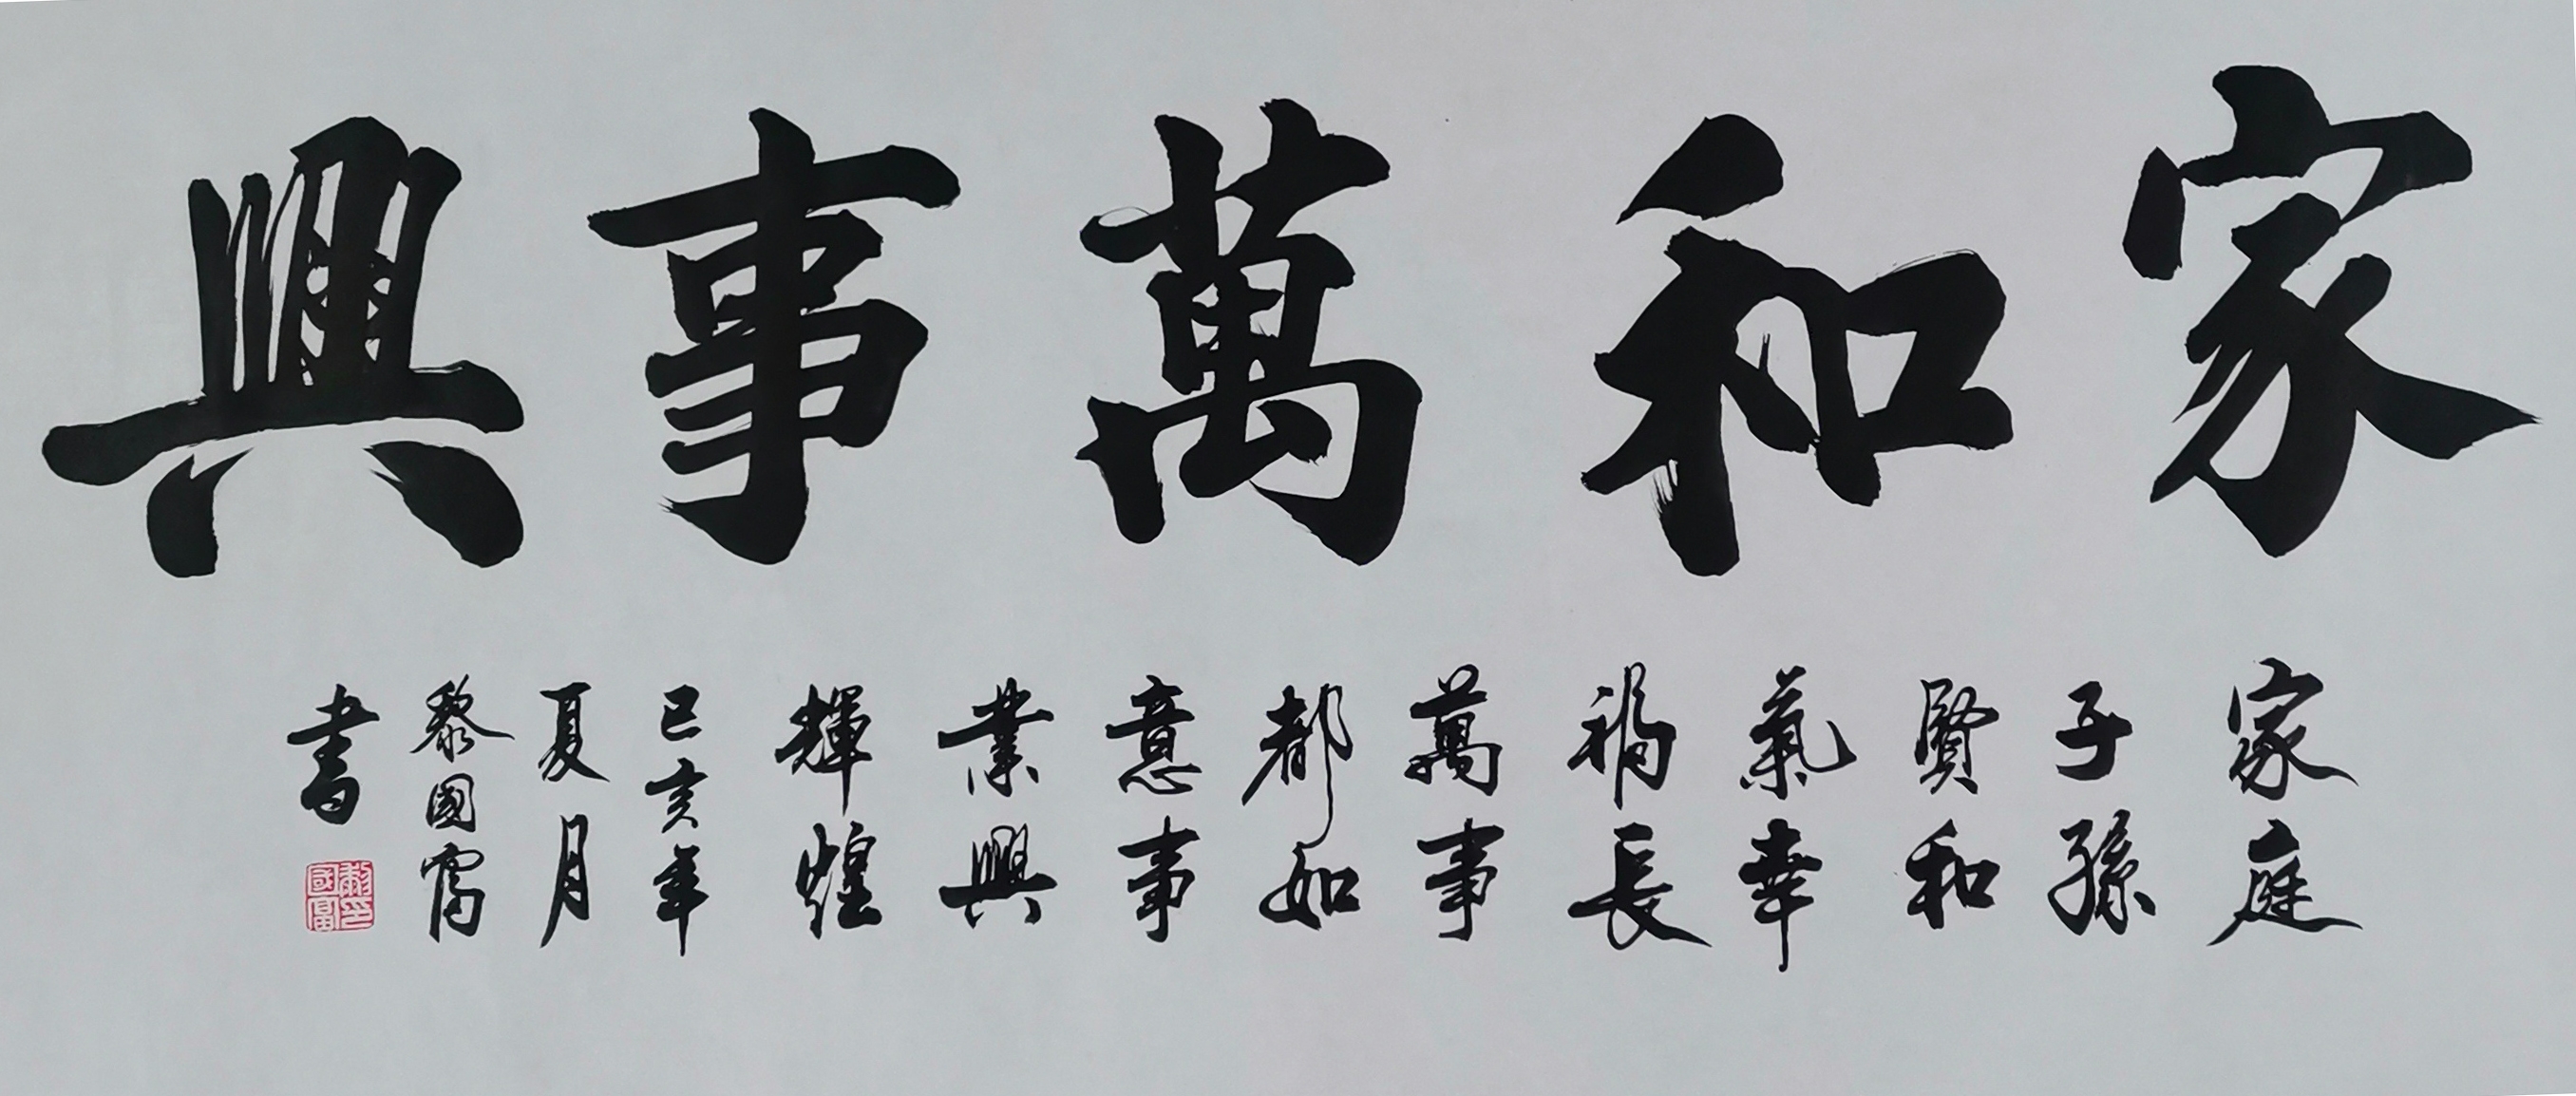 家和萬事興
家庭
子孫
賢和
氣幸
福長
萬事
都如
意事
業興
輝煌
己亥年
夏月
黎國富
書
黎印
國富